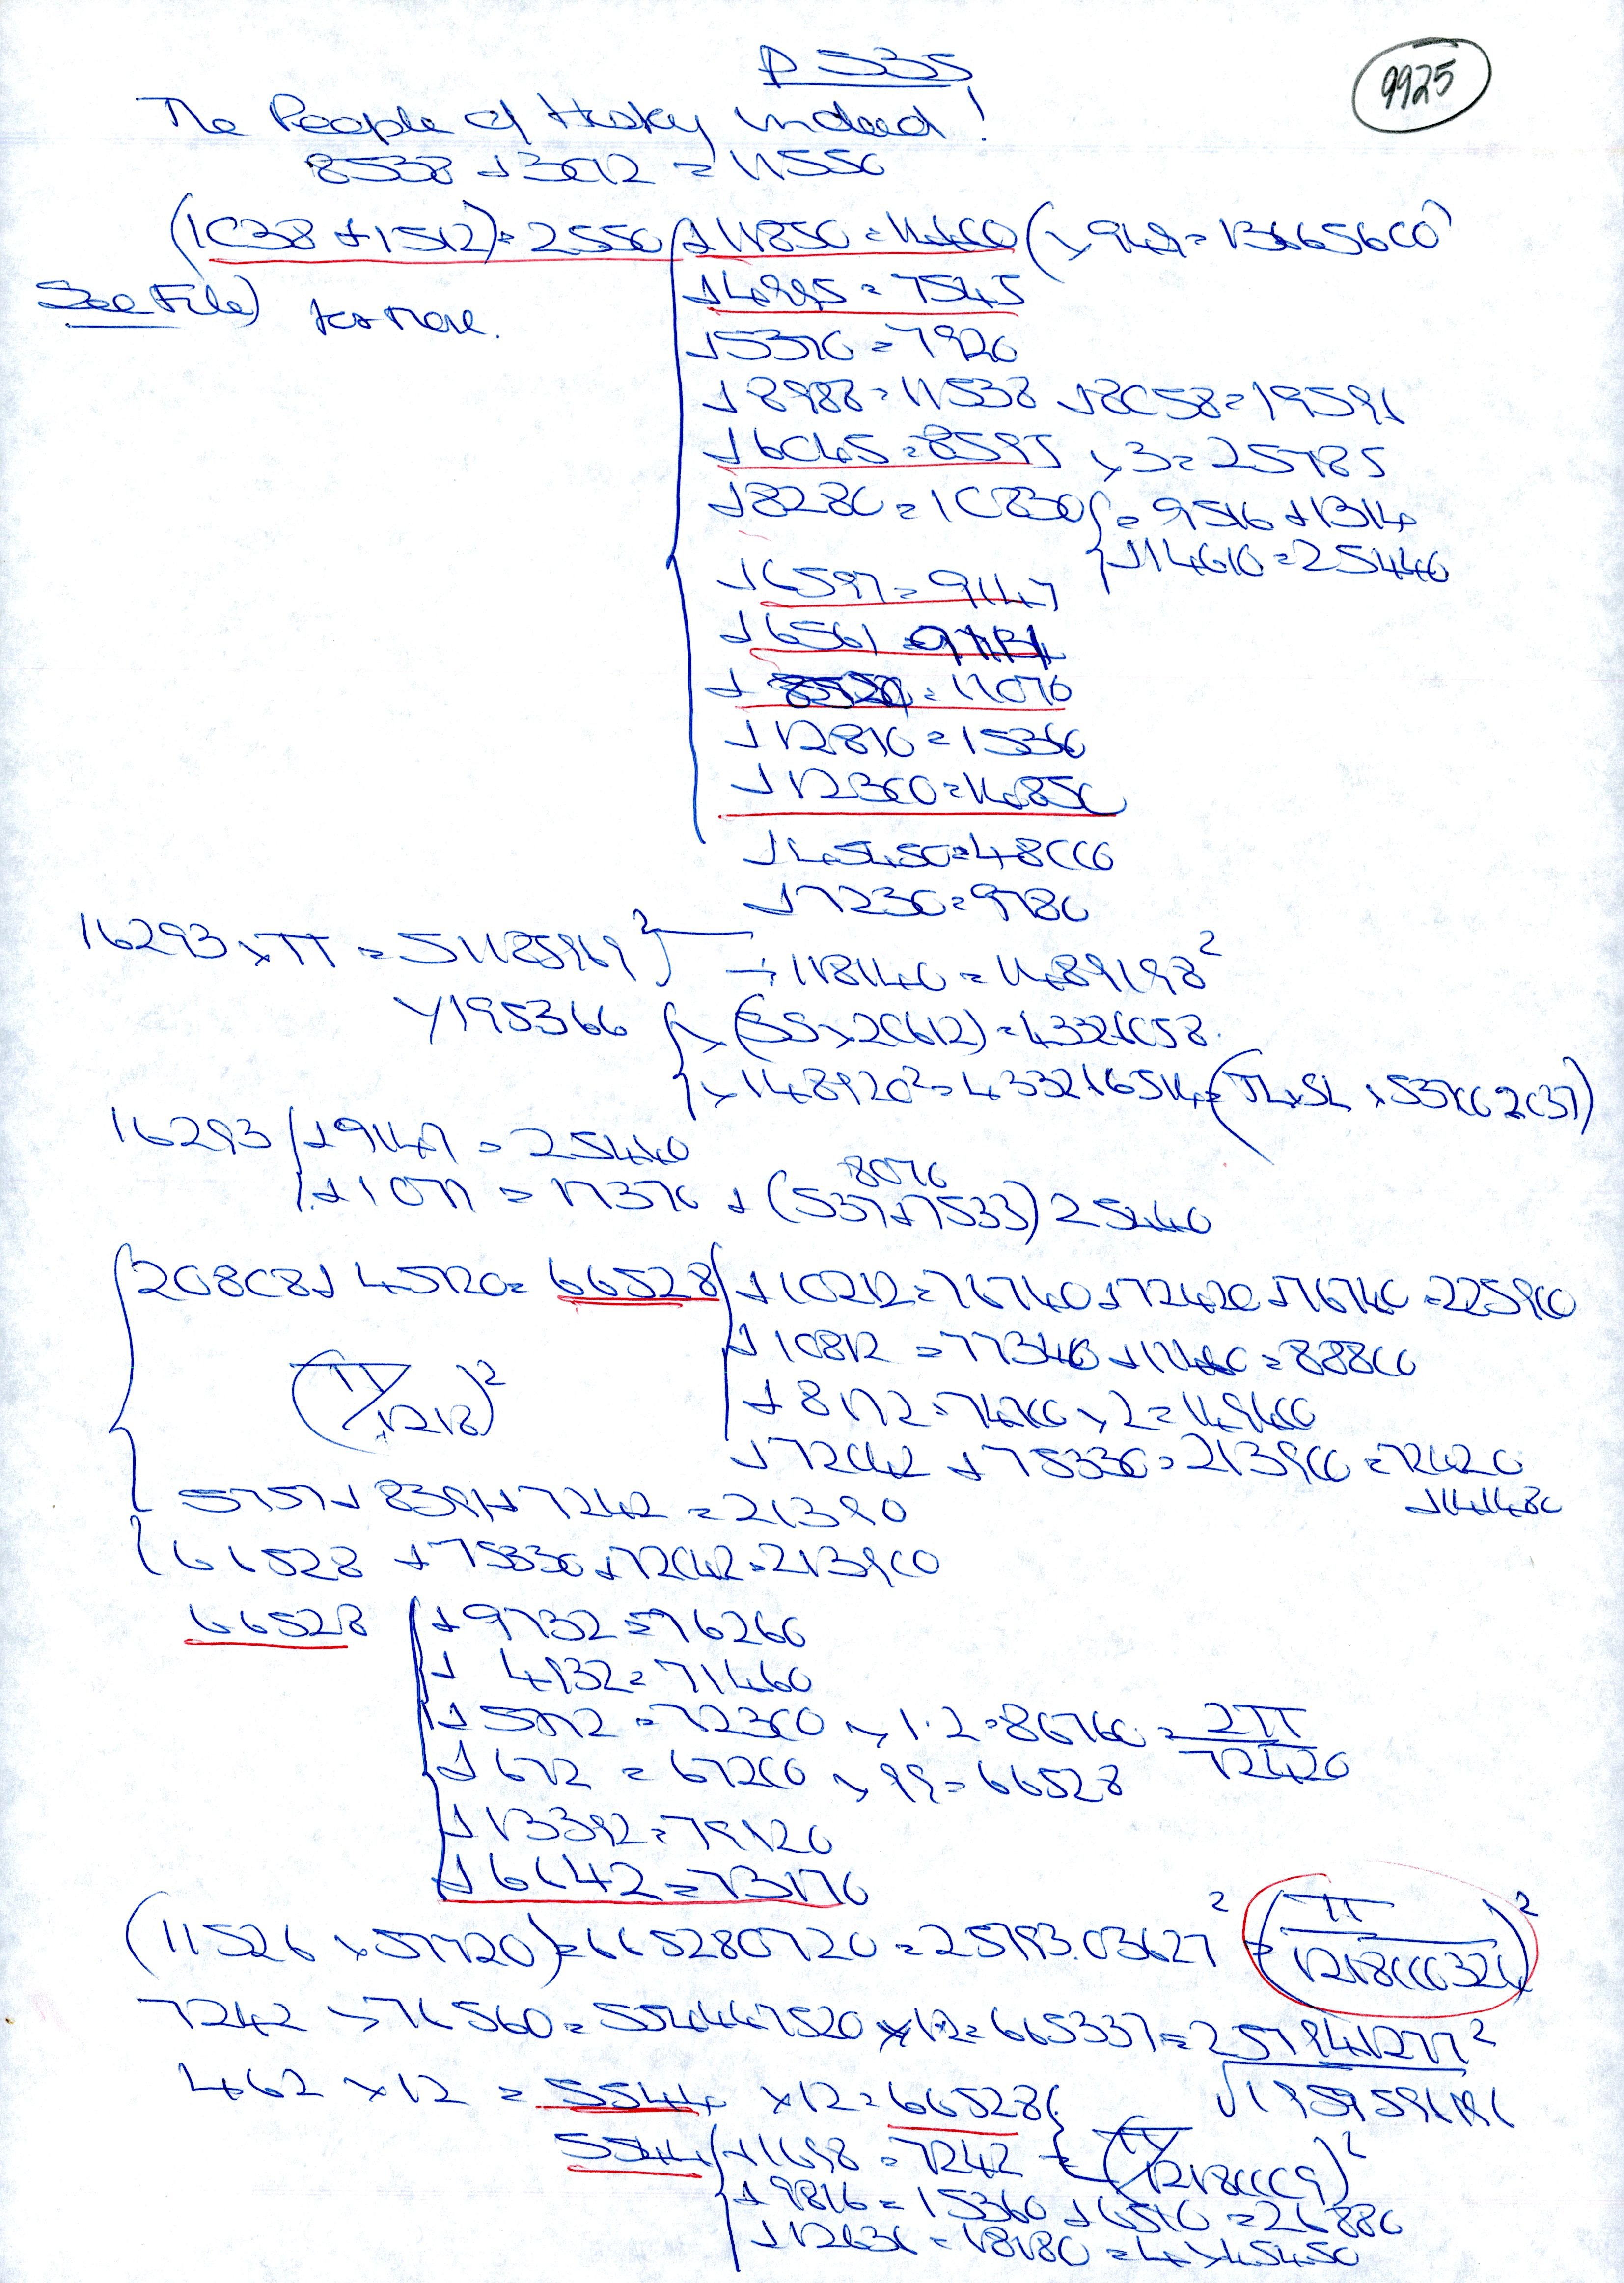 P 535
9925
The People of
indeed!
8538 + 3012 = 11550
(1038 + 1512) = 2550 + 11850 = 14400 (× 949 = 13665600)
See File) for more.
+ 4995 = 7545
+ 5370 = 7920
+ 8988 = 11538 + 8058 = 19591
+ 6045 = 8595 × 3 = 25785
+ 8280 = 10830 { = 9516 + 1314
+ 14610 = 25440
+ 6597 = 9147
+ 6561 = 9111
+ 8520 = 11070
+ 12810 = 15360
+ 12300 = 14850
+ 45450 = 48000
+ 7230 = 9780
16293 × π = 51185969² } ÷ 118140 = 1489198²
Y195366 { × (35 × 20612) = 4332058
× 148920² = 433216514 =
16293 / + 9147 = 25440
+ 1077 = 17370 + (537 + 7533) 25440
8070
{ 20808 + 45720 = 66528 { + 10212 = 76740 + 72420 + 76740 = 225900
+ 10812 = 77340 + 11460 = 88800
(π/1218)²
+ 8172 = 74700 × 2 = 149400
+ 72042 + 75330 = 213900 = 72420
+ 141480
5757 + 8391 + 7242 = 21390
{ 66528 + 75330 + 72042 = 213900
66528 { + 9732 = 76260
+ 4932 = 71460
+ 5772 = 72300 × 1.2 = 86760 = 2π/72420
+ 672 = 67200 × 99 = 66528
+ 13392 = 79920
+ 6642 = 73170
(11526 × 57720) = 665280720 = 25793.03627² = (π/1218000321)²
7242 × 76560 = 554447520 × 12 = 665337 = 257941277²
√195959191
462 × 12 = 5544 × 12 = 66528 {
5544 { + 1698 = 7242 = (π/12180009)²
+ 9816 = 15360 + 6510 = 26880
+ 12636 = 18180 = 4 × 45450